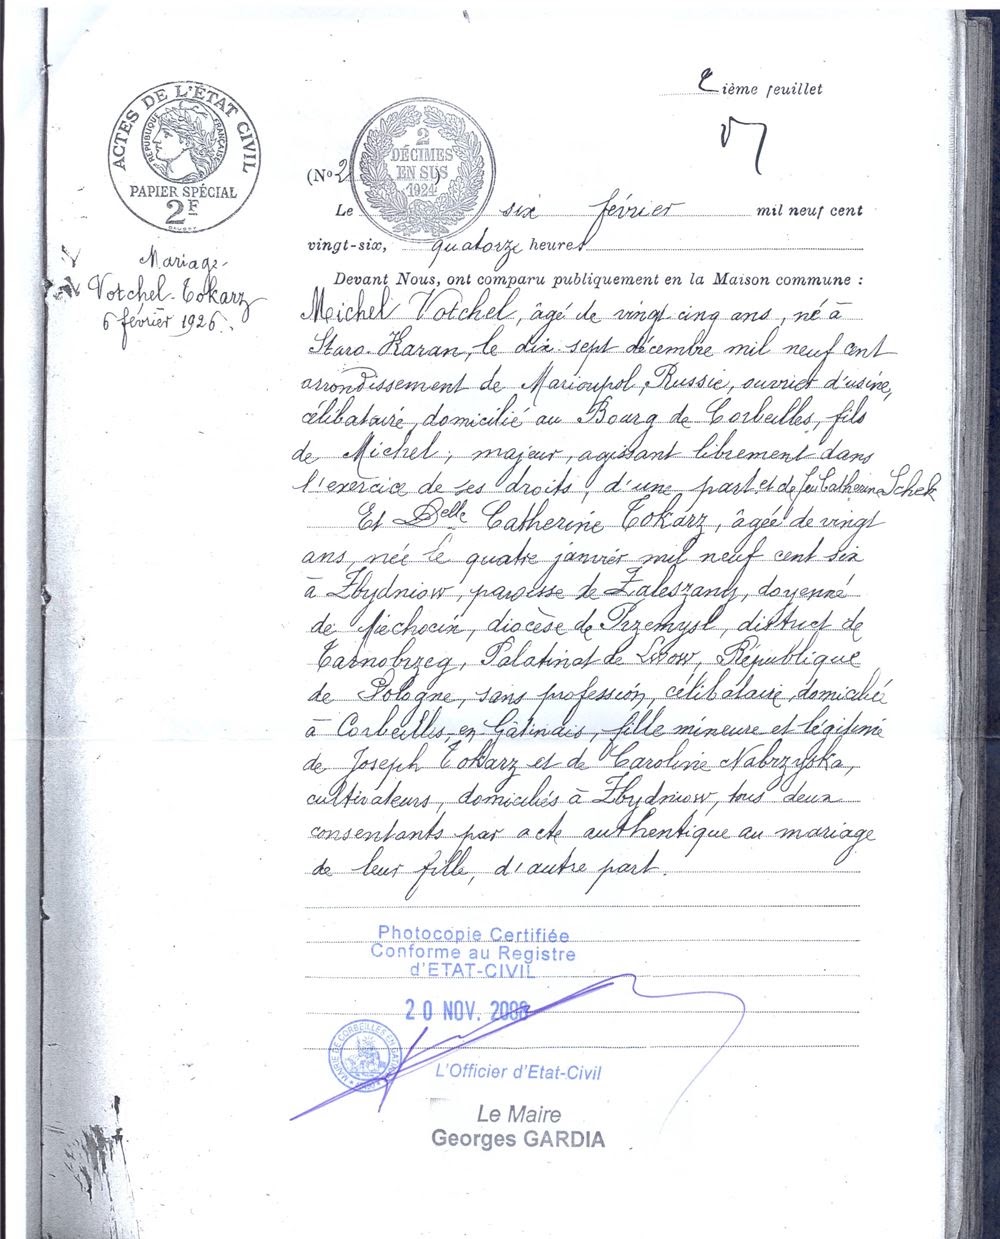 2ième feuillet
ACTES DE L'ÉTAT CIVIL
RÉPUBLIQUE FRANÇAISE
PAPIER SPÉCIAL
2F
2
DÉCIMES
EN SUS
1924
(No 2
Le six février mil neuf cent
vingt-six, quatorze heures
Mariage
Votchel-Tokarz
6 février 1926.
Devant Nous, ont comparu publiquement en la Maison commune :
Michel Votchel, âgé de vingt cinq ans, né à
Staro-Karan, le dix sept décembre mil neuf cent
arrondissement de Marioupol, Russie, ouvrier d'usine,
célibataire, domicilié au Bourg de Corbeilles, fils
de Michel, majeur, agissant librement dans
l'exercice de ses droits, d'une part, et de feu Catherine Schek
Et Delle Catherine Tokarz, âgée de vingt
ans, née le quatre janvier mil neuf cent six
à Zbydniow, paroisse de Zaleszany, doyenné
de Miechocin, diocèse de Przemysl, district de
Tarnobrzeg, Palatinat de Lwow, République
de Pologne, sans profession, célibataire, domicilié
à Corbeilles-en-Gâtinais, fille mineure et légitime
de Joseph Tokarz et de Caroline Nabrzyska,
cultivateurs, domiciliés à Zbydniow, tous deux
consentants par acte authentique au mariage
de leur fille, d'autre part.
Photocopie Certifiée
Conforme au Registre
d'ETAT-CIVIL
20 NOV. 2008
MAIRIE DE CORBEILLES EN GATINAIS
L'Officier d'Etat-Civil
Le Maire
Georges GARDIA